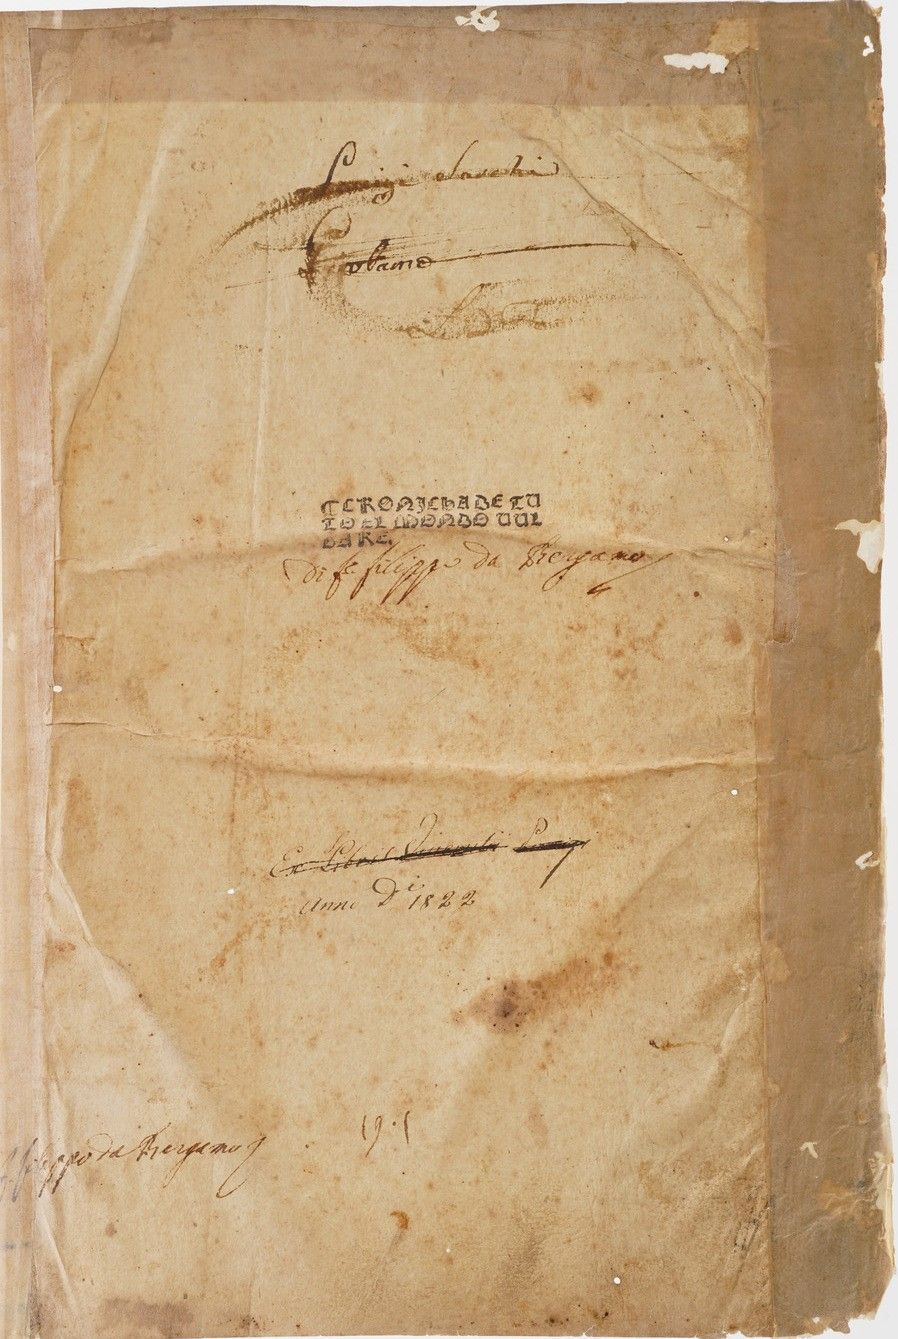 Luigi
¶CRONICHA DE TU
TO EL MONDO VUL
GARE.
di fr filippo da Bergamo
Ex Libris Vincentii
Anno Di 1822
filippo da Bergamo
19·1